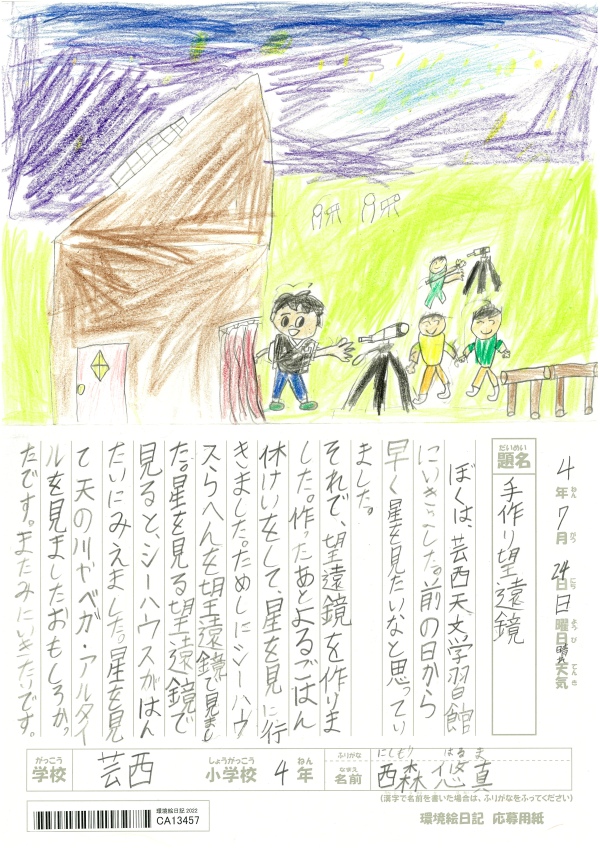 4年7月24日日曜日天気晴れ
ねん がつ にち ようび てんき
だいめい
題名
手作り望遠鏡
ぼくは、芸西天文学習館
にいきました。前の日から
早く星を見たいなと思ってい
ました。
それで、望遠鏡を作りま
した。作ったあとよるごはん
休けいをして、星を見に行
きました。ためしにシーハウ
スらへんを望遠鏡で見まし
た。星を見る望遠鏡で
見ると、シーハウスがはん
たいにみえました。星を見
て天の川やベガ・アルタイ
ルを見ましたおもしろかっ
たです。またみにいきたいです。
がっこう
学校
芸西
しょうがっこう
小学校
4
ねん
年
ふりがな
にしもり はるま
なまえ
名前
西森 悠真
(漢字で名前を書いた場合は、ふりがなをふってください)
環境絵日記 2022
CA13457
環境絵日記 応募用紙